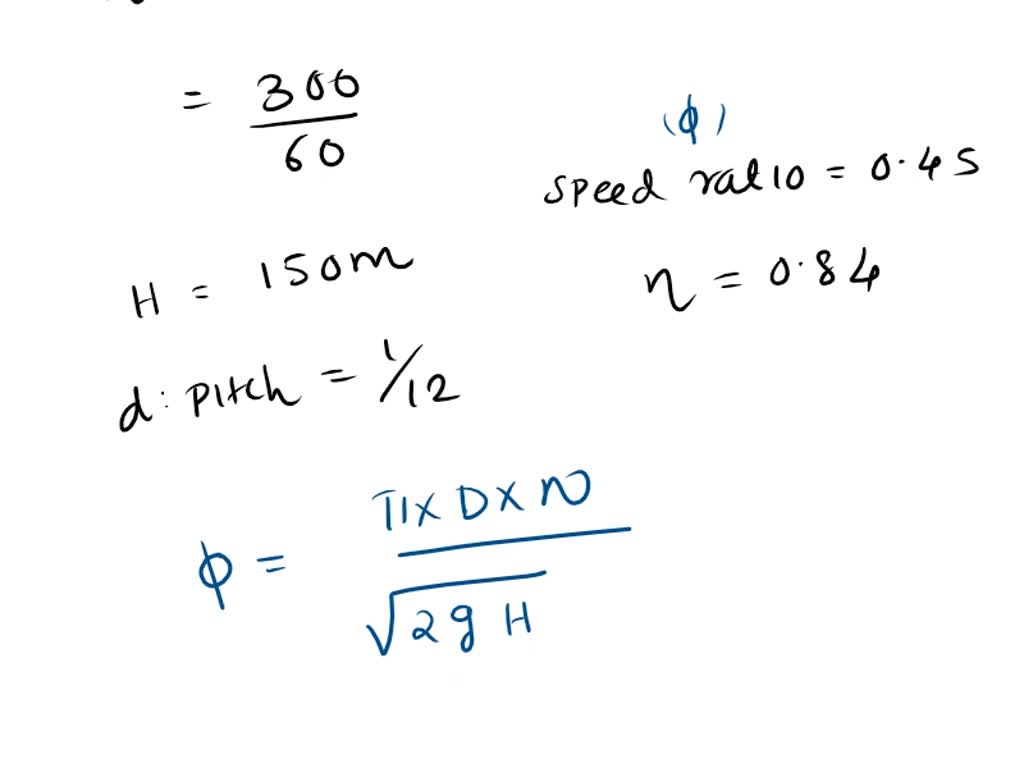 = 300/60
(ϕ)
speed ratio = 0.45
H = 150m
η = 0.84
d: pitch = 1/12
ϕ = π x D x N / √2gH